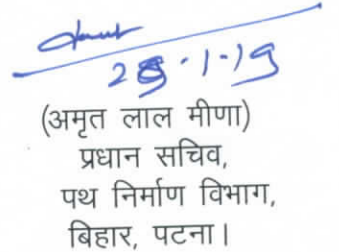 28.1.19
(अमृत लाल मीणा)
प्रधान सचिव,
पथ निर्माण विभाग,
बिहार, पटना।